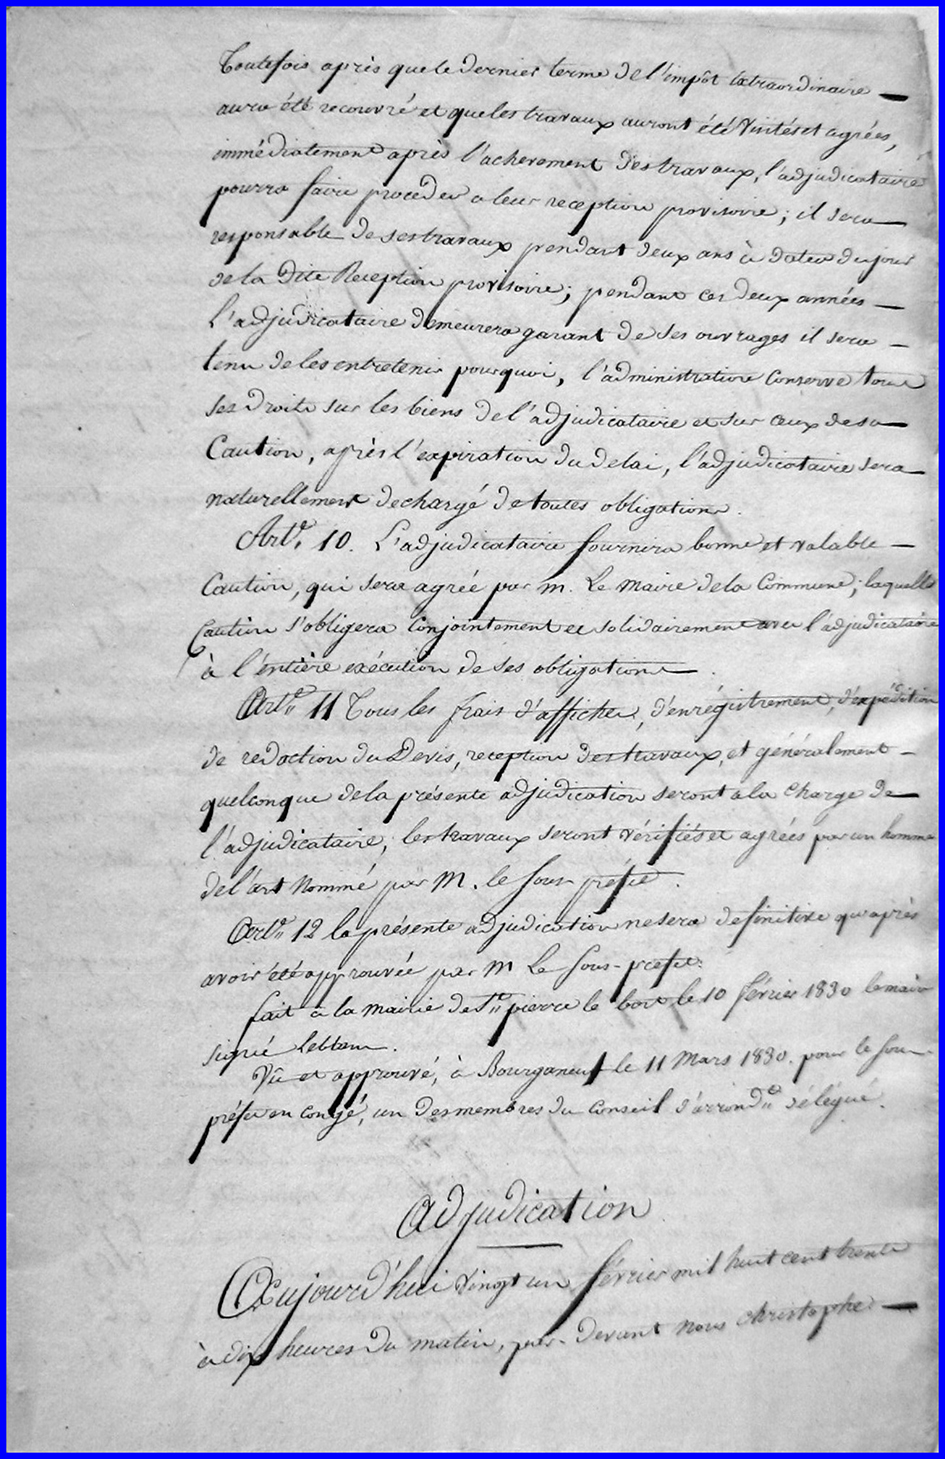 Toutefois après que le dernier terme de l'impôt extraordinaire
aura été recouvré et que les travaux auront été visités et agréés,
immédiatement après l'achevement des travaux, l'adjudicataire
pourra faire proceder a leur reception provisoire; il sera
responsable de ses travaux pendant deux ans à dater du jour
de la dite Reception provisoire; pendant ces deux années
L'adjudicataire demeurera garant de ses ouvrages il sera
tenu de les entretenir pourquoi, l'administration Conserve tous
ses droits sur les biens de l'adjudicataire et sur ceux de sa
Caution, après l'expiration du delai, l'adjudicataire sera
naturellement dechargé de toutes obligations.
Art.e 10. L'adjudicataire fournira bonne et valable
Caution, qui sera agréé par m. Le Maire de la Commune; laquelle
Caution s'obligera Conjointement et solidairement avec l'adjudicataire
à l'entière exécution de ses obligations.
Art.e 11 Tous les frais d'affiches, d'enrégistrement, d'expédition
de redaction du Devis, reception des travaux, et généralement
quelconque de la présente adjudication seront a la charge de
l'adjudicataire, les travaux seront vérifiés et agréés par un homme
de l'art Nommé par M. le Sous-préfet.
Art.e 12 la présente adjudication ne sera definitive qu'après
avoir été approuvée par M Le Sous-prefet.
fait à la Mairie de St pierre le bost le 10 février 1830 le maire
signé
Vû et approuvé, à Bourganeuf le 11 Mars 1830. pour le Sous
préfet en congé, un des membres du Conseil d'arrond.t délégué.
Adjudication
Aujourd'hui vingt un février mil huit cent trente
à dix heures du matin, par-devant nous christophe